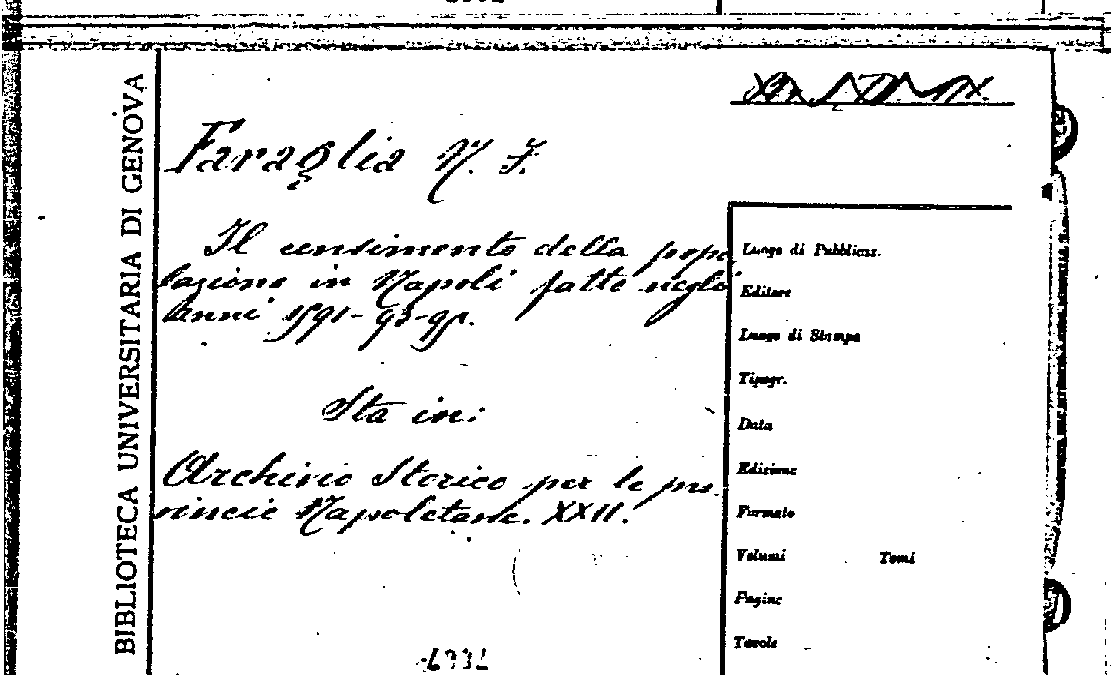 BIBLIOTECA UNIVERSITARIA DI GENOVA
Faraglia N. F.
Il censimento della popo
lazione in Napoli fatto negli
anni 1591-93-95.
Sta in:
Archivio Storico per le pro-
vincie Napoletane. XXII.
Luogo di Pubblicaz.
Editore
Luogo di Stampa
Tipogr.
Data
Edizione
Formato
Volumi Tomi
Pagine
Tavole